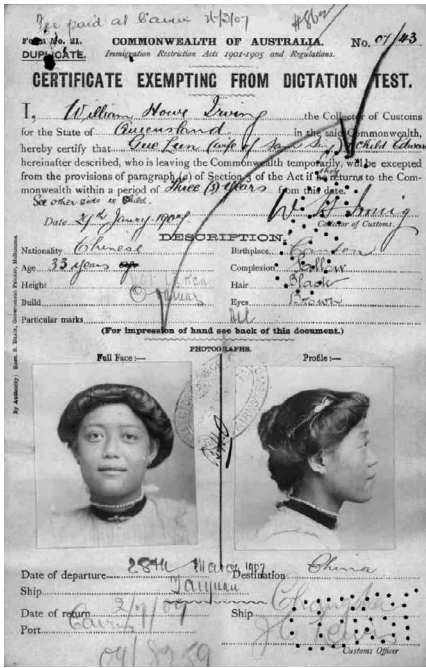 Fee paid at Cairns 26/3/07
Form No. 21. COMMONWEALTH OF AUSTRALIA. No. 07/43
DUPLICATE. Immigration Restriction Acts 1901-1905 and Regulations.
CERTIFICATE EXEMPTING FROM DICTATION TEST.
I, William Howe Irving the Collector of Customs
for the State of Queensland in the said Commonwealth,
hereby certify that Gue Lun (wife of Sam Sing) & Child Edward
hereinafter described, who is leaving the Commonwealth temporarily, will be excepted
from the provisions of paragraph (a) of Section 3 of the Act if he they returns to the Com-
monwealth within a period of three (3) years from this date.
See other side re Child.
W H Irving
Date 29th Janry 1907 Collector of Customs.
DESCRIPTION.
Nationality Chinese Birthplace Canton
Age 33 years Complexion Yellow
Height Hair Black
Build Eyes Brown
Particular marks Nil
(For impression of hand see back of this document.)
PHOTOGRAPHS.
Full Face:— Profile:—
Date of departure 28th March 1907 Destination China
Ship Taiyuan
Date of return 2/7/09 Ship Changsha
Port Cairns
Customs Officer
By Authority:
Government Printer, Melbourne.